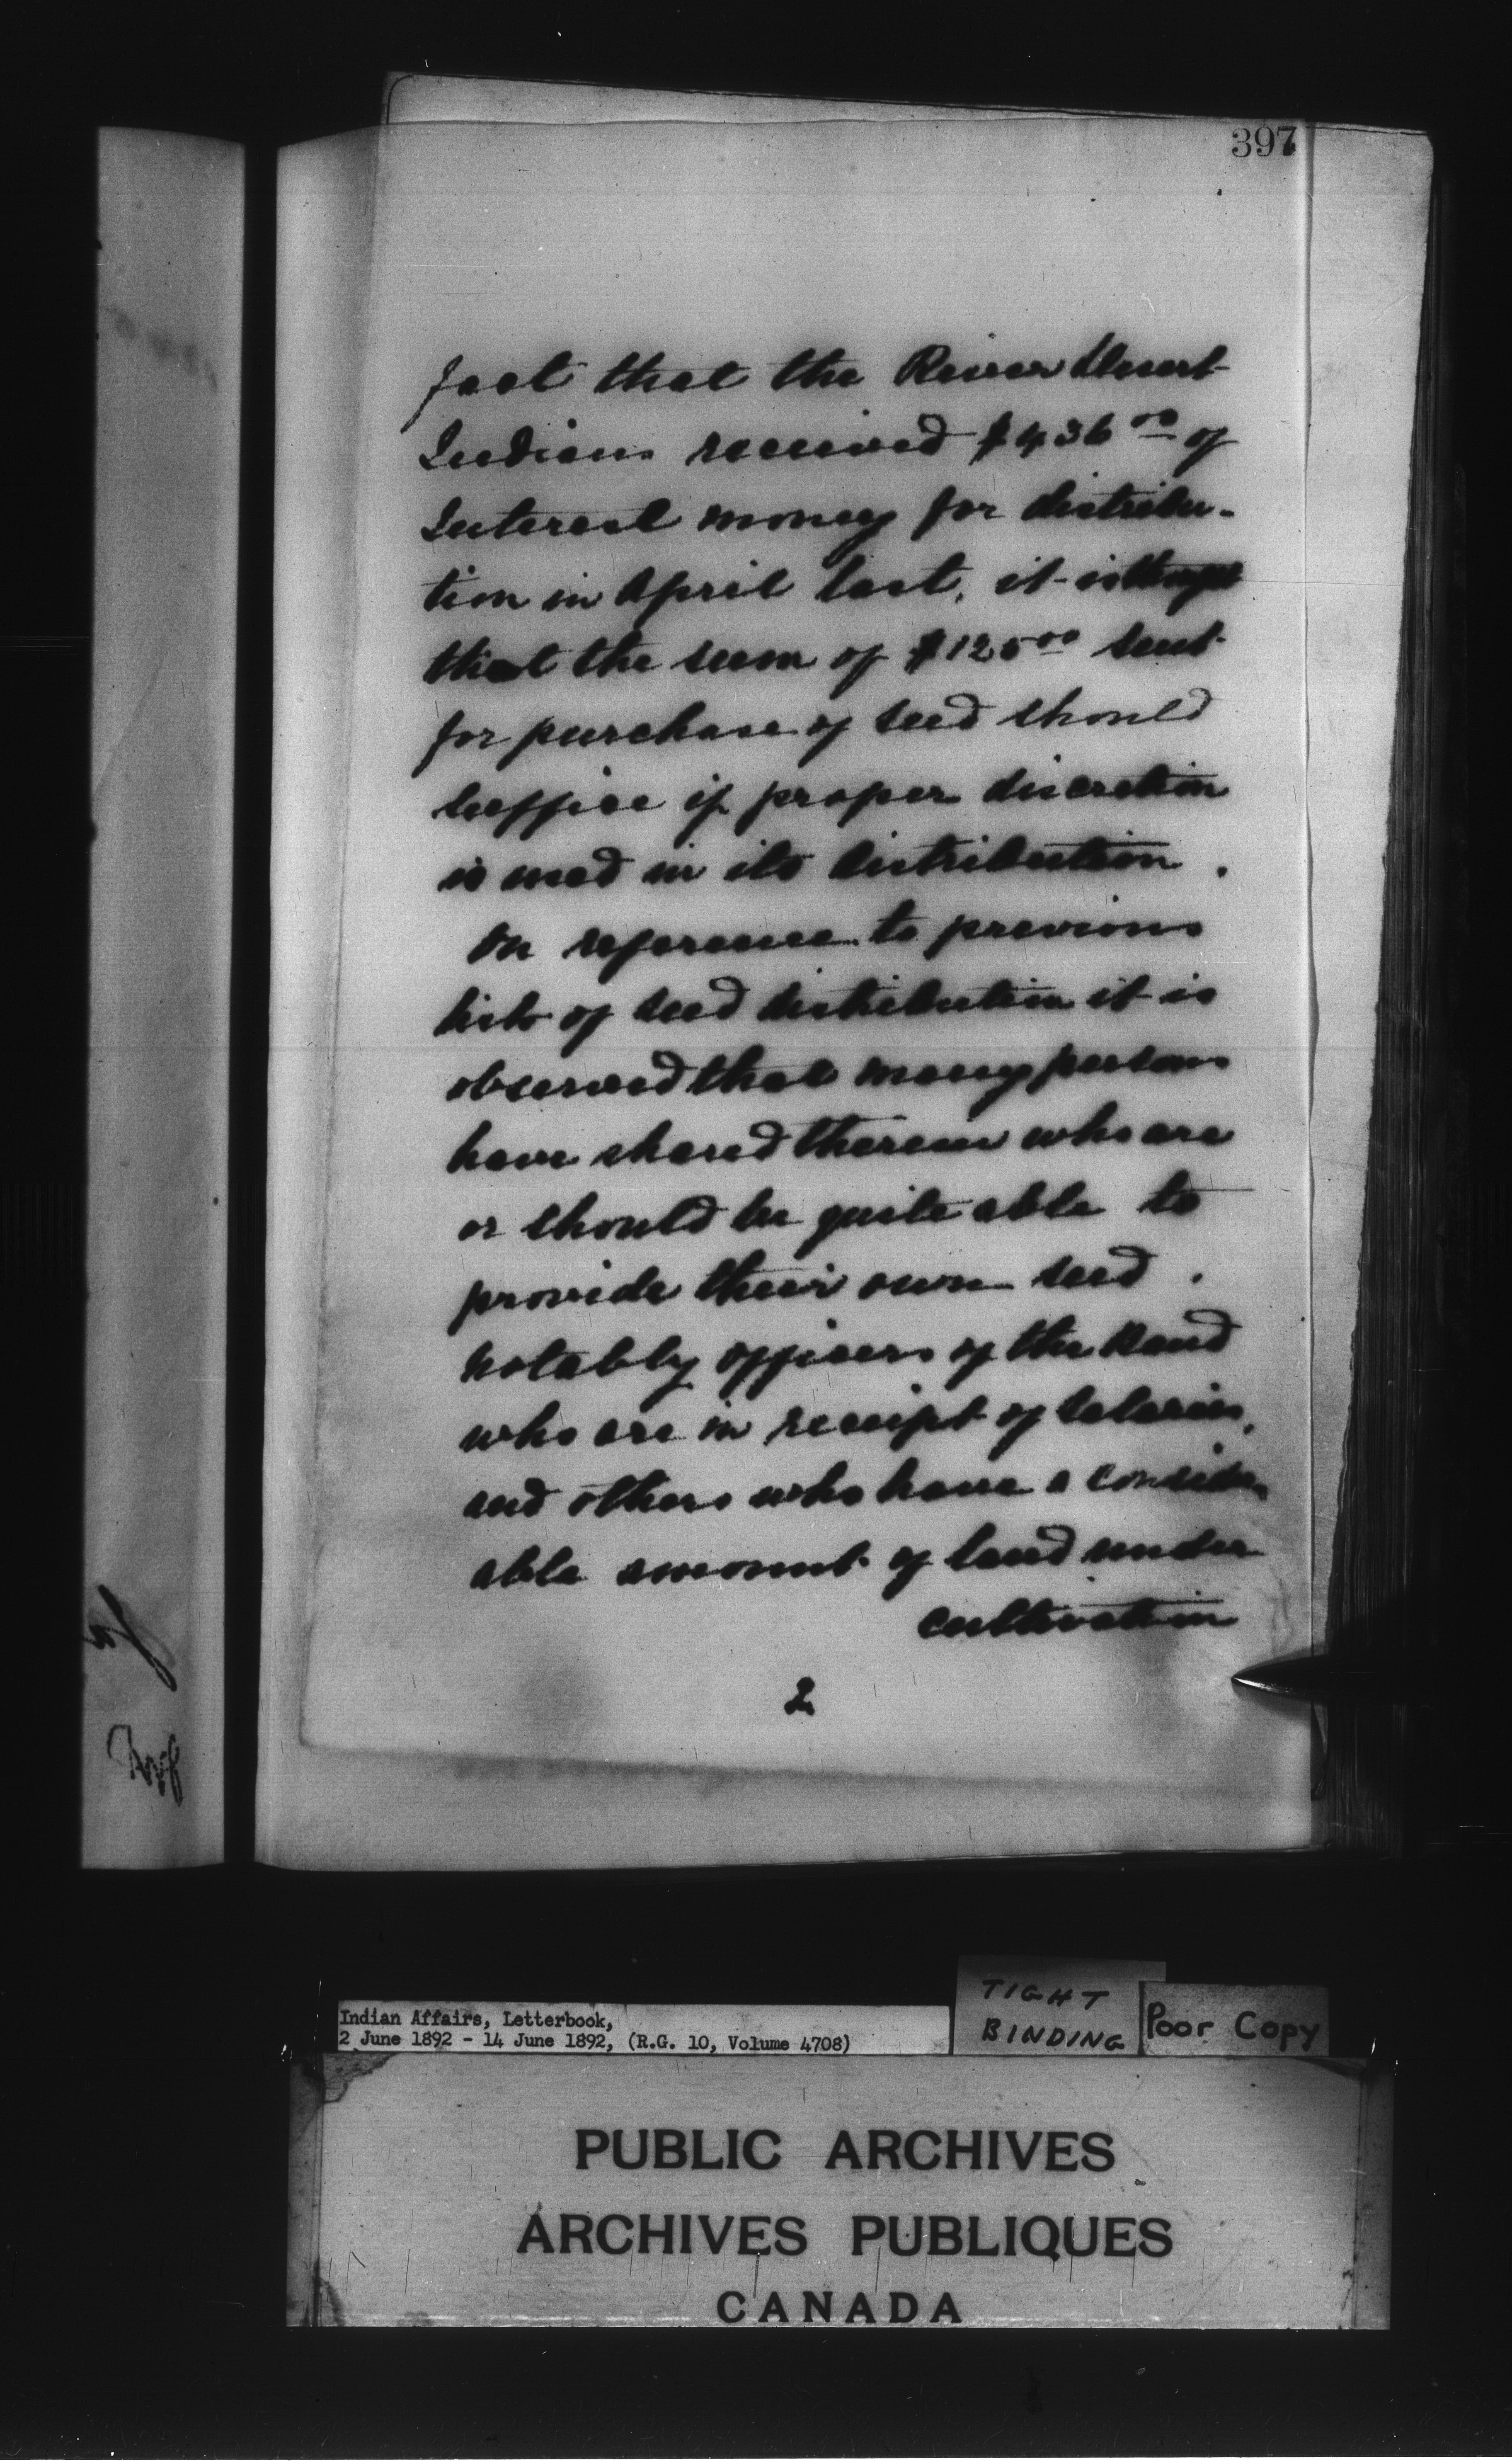 397
fact that the River Desert
Indians received $436 00 of
Interest money for distribu-
tion in April last, it is thought
that the sum of $125 00 sent
for purchase of seed should
suffice if proper discretion
is used in its distribution.
On reference to previous
lists of seed distribution it is
observed that many persons
have shared therein who are
or should be quite able to
provide their own seed.
notably officers of the Band
who are in receipt of salaries,
and others who have a consider
able amount of land under
cultivation
2
Indian Affairs, Letterbook,
2 June 1892 - 14 June 1892, (R.G. 10, Volume 4708)
TIGHT
BINDING
Poor Copy
PUBLIC ARCHIVES
ARCHIVES PUBLIQUES
CANADA